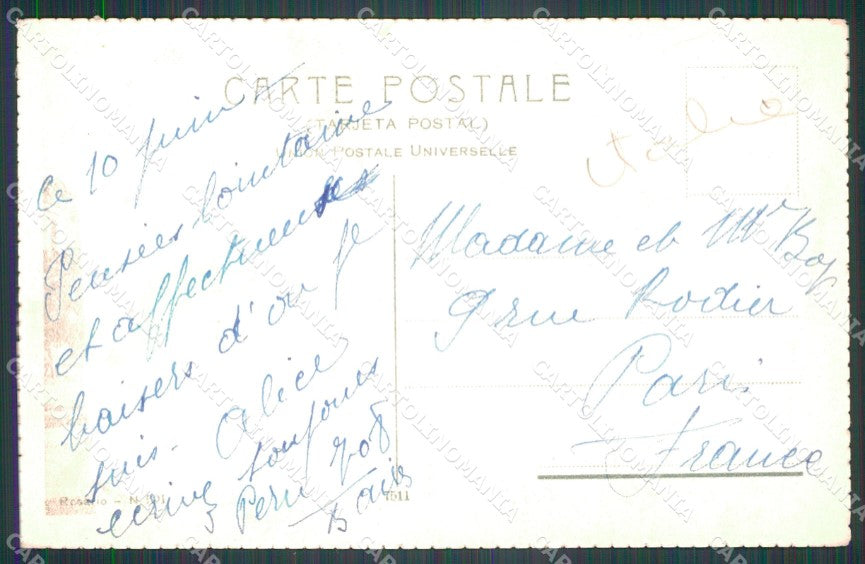 CARTE POSTALE
(TARJETA POSTAL)
UNION POSTALE UNIVERSELLE
le 10 juin
Pensées lointaines
et affectueuses
baisers d'où je
suis - Alice
écrire toujours
Peru 708
B aires
Madame et Mr
9 rue Rodier
Paris
France
Rosario - N
1511
CARTOLINOMANIA